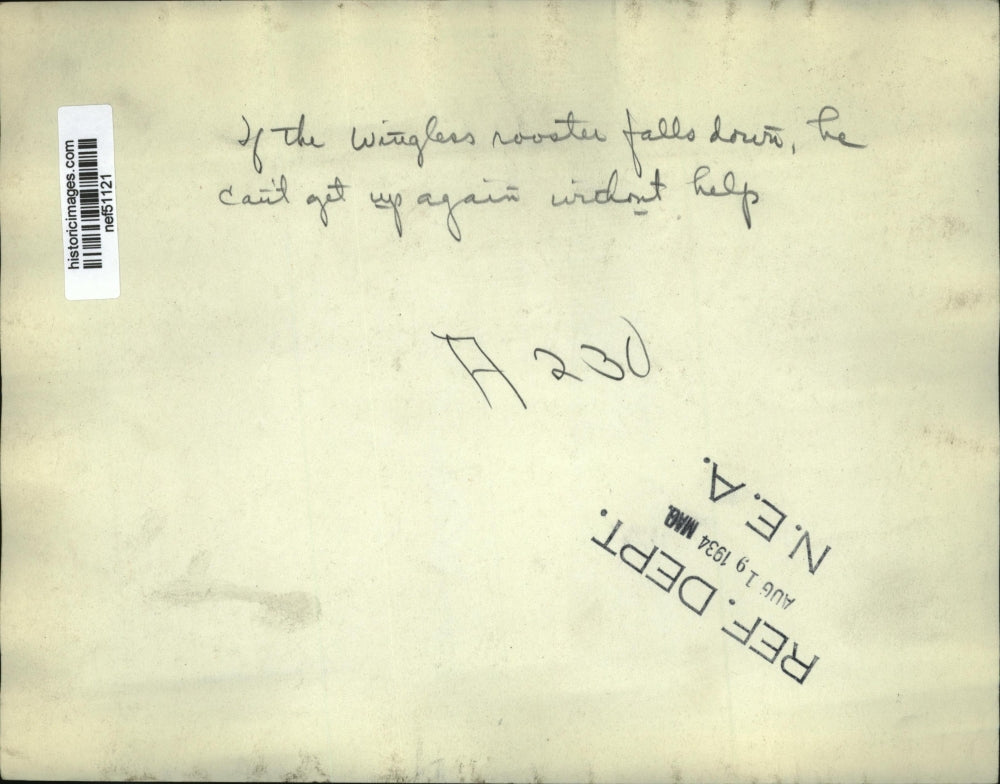 If the wingless rooster falls down, he
can't get up again without help
A 230
REF. DEPT.
AUG 19 1934 MAG.
N.E.A.
historicimages.com
nef51121